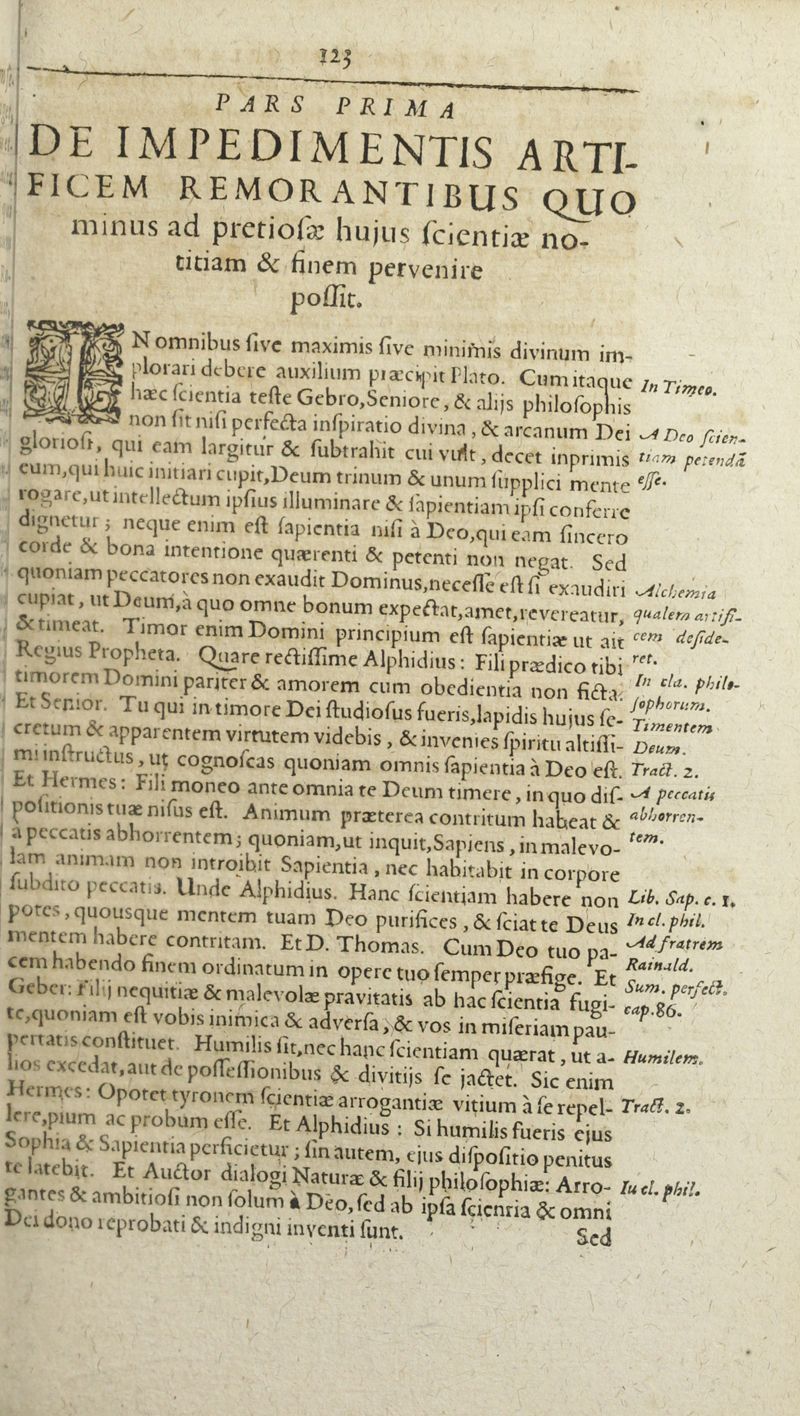 123
PARS PRIMA
DE IMPEDIMENTIS ARTI-
FICEM REMORANTIBUS QUO
minus ad pretioſæ hujus ſcientiæ no-
titiam & finem pervenire
poſſit.
IN omnibus ſive maximis ſive minimis divinum im-
plorari debere auxilium præcipit Plato. Cum itaque In Timeo.
hæc ſcientia teſte Gebro, Seniore, & alijs philoſophis
non fit niſi perfecta inſpiratio divina, & arcanum Dei A Deo ſcien-
glorioſi, qui eam largitur & ſubtrahit cui vult, decet inprimis tiam petendã
eum, qui huic initiari cupit, Deum trinum & unum ſupplici mente eſſe.
rogare, ut intellectum ipſius illuminare & ſapientiam ipſi conferre
dignetur; neque enim eſt ſapientia niſi à Deo, qui eam ſincero
corde & bona intentione quærenti & petenti non negat. Sed
quoniam peccatores non exaudit Dominus, neceſſe eſt ſi exaudiri Alchemia
cupiat, ut Deum, à quo omne bonum expectat, amet, revereatur, qualem artifi-
& timeat. Timor enim Domini principium eſt ſapientiæ ut ait cem deſide-
Regius Propheta. Quare rectiſſime Alphidius: Fili prædico tibi ret.
timorem Domini pariter & amorem cum obedientia non ficta. In cla. philo-
Et Senior. Tu qui in timore Dei ſtudioſus fueris, lapidis hujus ſe- ſophorum.
cretum & apparentem virtutem videbis, & invenies ſpiritu altiſſi- Timentem Deum.
mi inſtructus, ut cognoſcas quoniam omnis ſapientia à Deo eſt. Tract. 2.
Et Hermes: Fili moneo ante omnia te Deum timere, in quo diſ- A peccatis
poſitionis tuæ niſus eſt. Animum præterea contritum habeat & abhorren-
a peccatis abhorrentem; quoniam, ut inquit, Sapiens, in malevo- tem.
lam animam non introibit Sapientia, nec habitabit in corpore
ſubdito peccatis. Unde Alphidius. Hanc ſcientiam habere non Lib. Sap. c. 1.
potes, quousque mentem tuam Deo purifices, & ſciat te Deus In cl. phil.
mentem habere contritam. Et D. Thomas. Cum Deo tuo pa- Ad fratrem
cem habendo finem ordinatum in opere tuo ſemper præfige. Et Rainald.
Geber: Filij nequitiæ & malevolæ pravitatis ab hac ſcientia fugi- Sum. perfect.
te, quoniam eſt vobis inimica & adverſa, & vos in miſeriam pau- cap. 86.
pertatis conſtituet. Humilis ſit, nec hanc ſcientiam quærat, ut a- Humilem.
lios excedat, aut de poſſeſſionibus & divitijs ſe jactet. Sic enim
Hermes: Opotet tyronem ſcientiæ arrogantiæ vitium à ſe repel- Tract. 2.
lere, pium ac probum eſſe. Et Alphidius: Si humilis fueris ejus
Sophia & Sapientia perficietur; ſin autem, ejus diſpoſitio penitus
te latebit. Et Auctor dialogi Naturæ & filij philoſophiæ: Arro- In cl. phil.
gantes & ambitioſi non ſolum à Deo, ſed ab ipſa ſcientia & omni
Dei dono reprobati & indigni inventi ſunt.
Sed